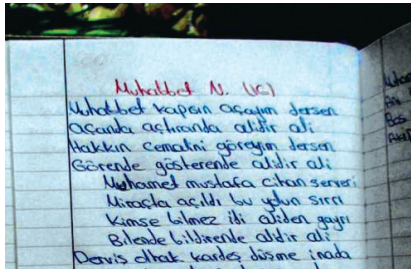 Muhabbet N. (1c)
Muhabbet kapsın açayım dersen
Açanda açtıranda alidir ali
Hakkın cemalini göreyim dersen
Görende gösterende alidir ali
Muhamet mustafa cihan serveri
Miraçta açıldı bu yolun sırrı
Kimse bilmez idi aliden gayrı
Bilende bildirende alidir ali
Derviş elhak kardeş düşme inada